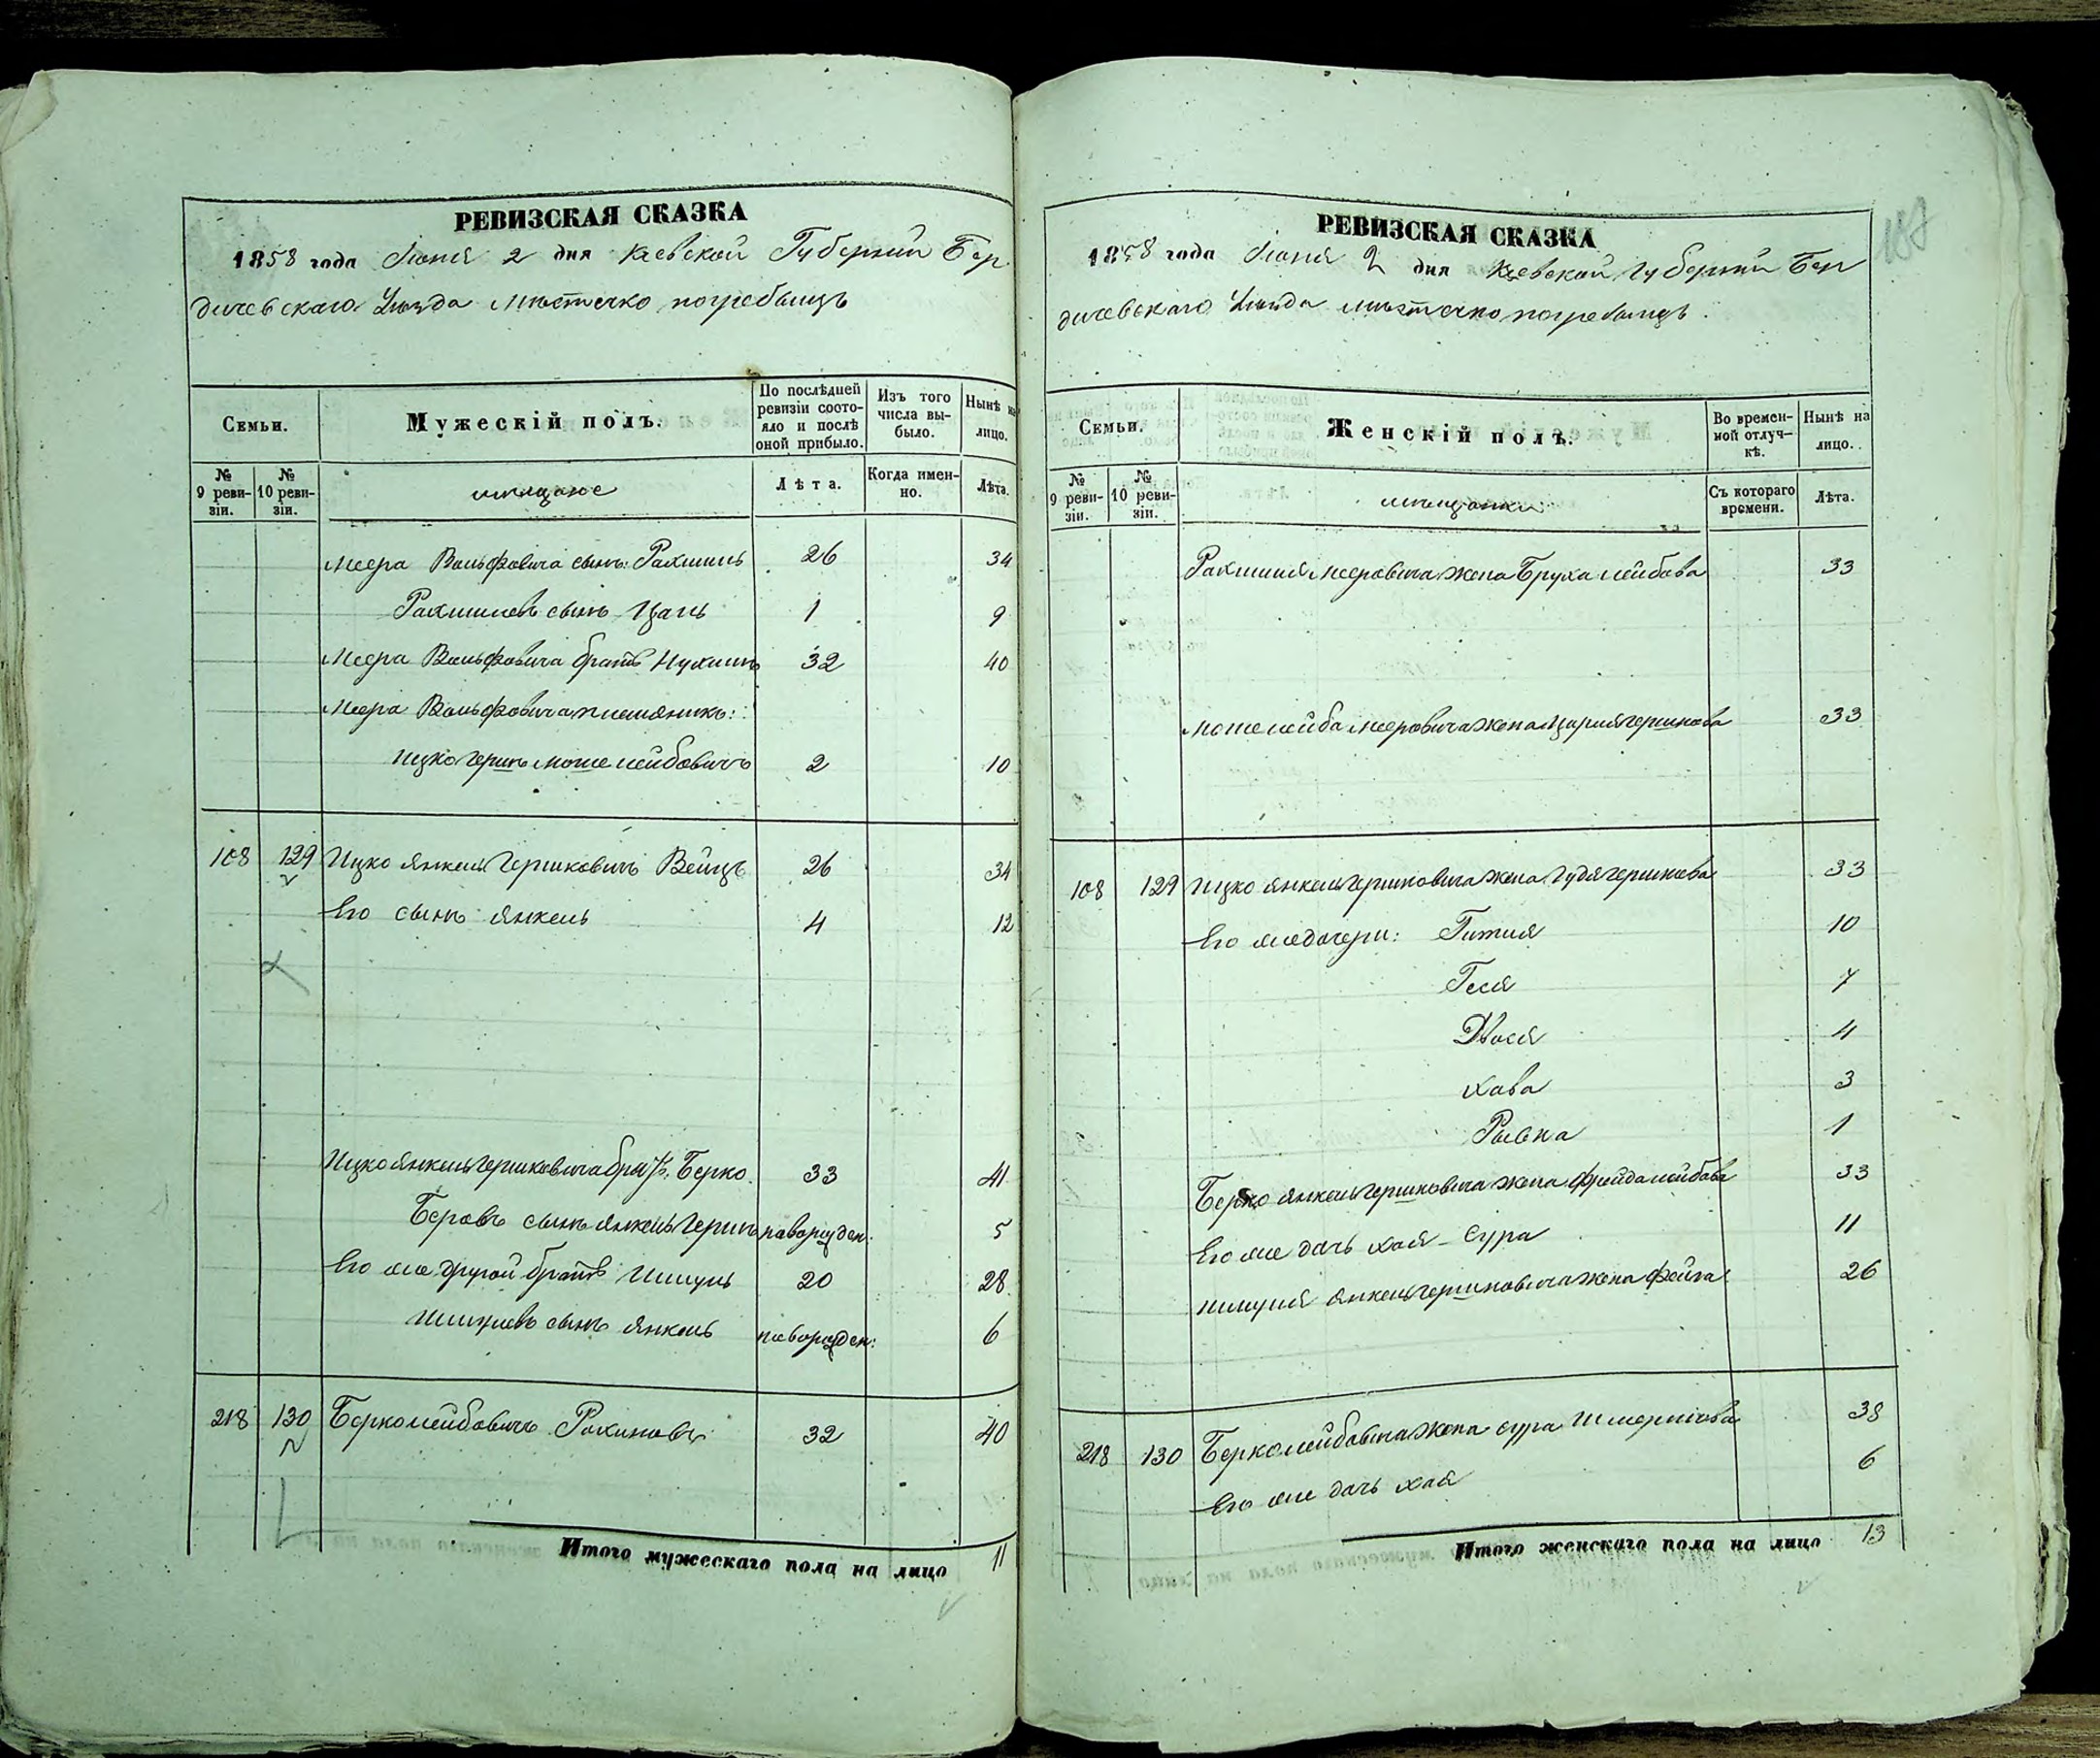 РЕВИЗСКАЯ СКАЗКА
1858 года Іюня 2 дня Кіевской Губерніи Бер
дичевскаго Уѣзда мѣстечко погребищъ
Семьи.
Мужескій полъ.
По послѣдней ревизіи состояло и послѣ оной прибыло.
Изъ того числа выбыло.
Нынѣ на лицо.
№ 9 ревизіи.
№ 10 ревизіи.
мѣщане
Лѣта.
Когда именно.
Лѣта.
Меера Вольфовича сынъ: Рахмиль 26 34
Рахмилевъ сынъ 1 9
Меера Вольфовича братъ Нухимъ 32 40
Меера Вольфовича племянникъ:
Ицко Гершъ Моше Лейбовичъ 2 10
108 129 Ицко Янкель Гершковичъ Вейцъ 26 34
Его сынъ Янкель 4 12
Ицко Янкель Гершковича братъ, Берко 33 41
Беровъ сынъ Янкель Гершъ новорожден: 5
Его же другой братъ Шмуль 20 28
Шмулевъ сынъ Янкель новорожден: 6
218 130 Берко Лейбовичъ 32 40
Итого мужескаго пола на лицо 11
РЕВИЗСКАЯ СКАЗКА
187
1858 года Іюня 2 дня Кіевской Губерніи Бер
дичевскаго Уѣзда мѣстечко погребищъ.
Семьи.
Женскій полъ.
Во временной отлучкѣ.
Нынѣ на лицо.
№ 9 ревизіи.
№ 10 ревизіи.
мѣщанки
Съ котораго времени.
Лѣта.
Рахмиля Мееровича жена Бруха Лейбова 33
Моше Лейба Мееровича жена Гершкова 33
108 129 Ицко Янкель Гершковича жена Гудя Гершкова 33
Его же дочери: Гитля 10
Геся 7
Двося 4
Хава 3
Рывка 1
Берко Янкель Гершковича жена Фрейда Лейбова 33
Его же дочь Хая-Сура 11
Шмуля Янкель Гершковича жена Фейга 26
218 130 Берко Лейбовича жена Сура Шмеркова 38
Его же дочь Хая 6
Итого женскаго пола на лицо 13